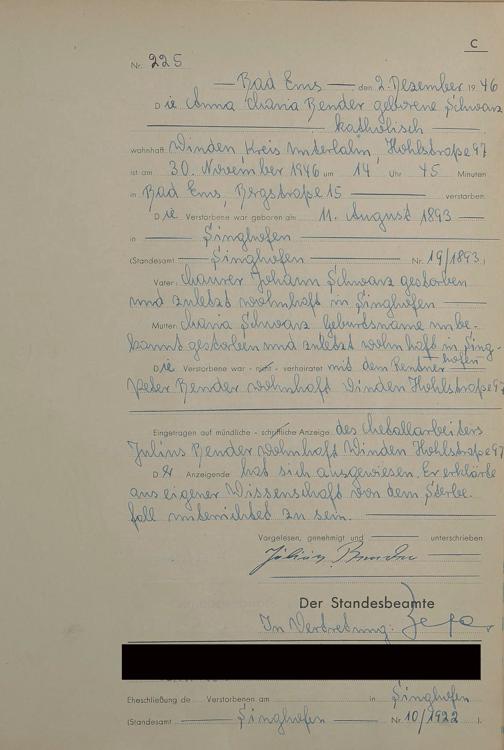 C
Nr. 225
Bad Ems, den 2. Dezember 1946
Die Anna Maria Bender geborene Schwarz
katholisch
wohnhaft Winden, Kreis Unterlahn, Hohlstraße 97
ist am 30. November 1946 um 14 Uhr 45 Minuten
in Bad Ems, Bergstraße 15 verstorben.
Die Verstorbene war geboren am 11. August 1893
in Singhofen
(Standesamt Singhofen Nr. 19/1893)
Vater: Maurer Johann Schwarz gestorben
und zuletzt wohnhaft in Singhofen
Mutter: Maria Schwarz Geburtsname unbe-
kannt gestorben und zuletzt wohnhaft in Sing-
hofen
Die Verstorbene war - nicht - verheiratet mit dem Rentner
Peter Bender wohnhaft Winden Hohlstraße 97
Eingetragen auf mündliche - schriftliche Anzeige des Metallarbeiters
Julius Bender wohnhaft Winden Hohlstraße 97
Der Anzeigende hat sich ausgewiesen. Er erklärte
aus eigener Wissenschaft von dem Sterbe-
fall unterrichtet zu sein.
Vorgelesen, genehmigt und unterschrieben
Julius Bender
Der Standesbeamte
In Vertretung:
Eheschließung de Verstorbenen am in Singhofen
(Standesamt Singhofen Nr. 10/1922).